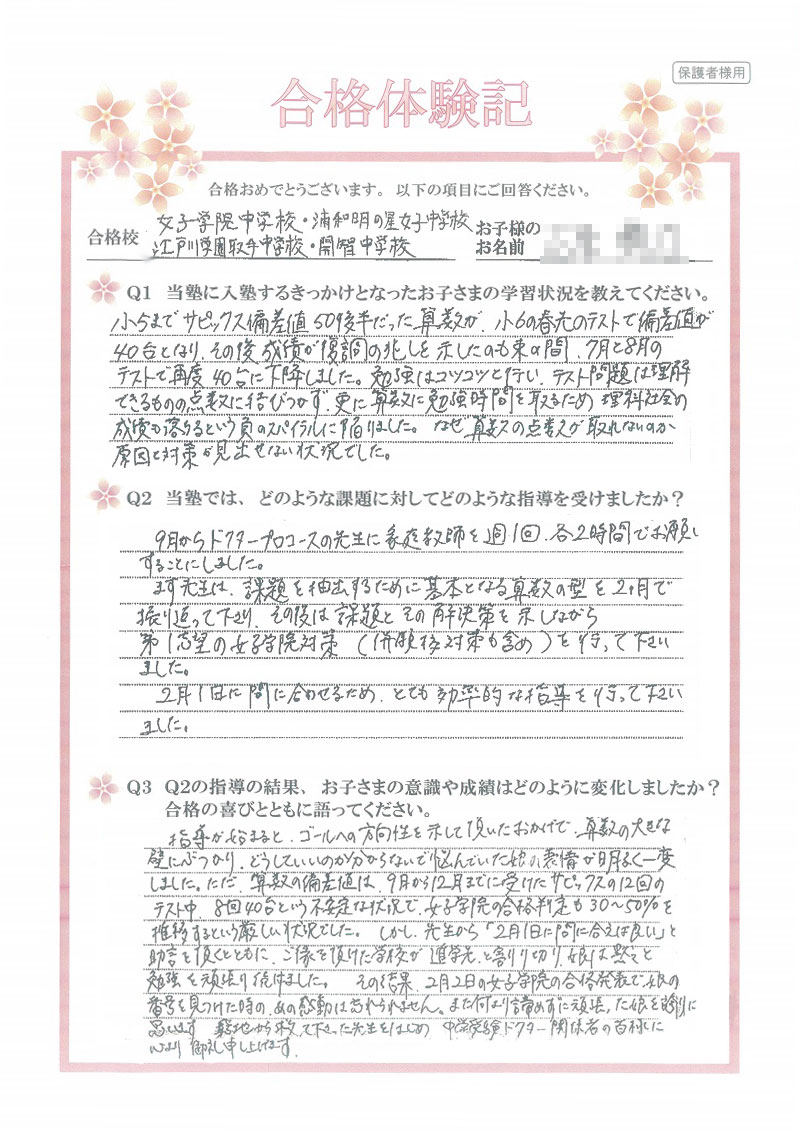 保護者様用
合格体験記
合格おめでとうございます。以下の項目にご回答ください。
合格校
女子学院中学校・浦和明の星女子中学校
江戸川学園取手中学校・開智中学校
お子様の
お名前
Q1 当塾に入塾するきっかけとなったお子さまの学習状況を教えてください。
小5までサピックス偏差値50後半だった算数が、小6の春先のテストで偏差値が
40台となり、その後成績が復調の兆しを示したのも束の間、7月と8月の
テストで再度40台に下降しました。勉強はコツコツと行い、テスト問題は理解
できるものの点数に結びつかず、更に算数に勉強時間を取るため、理科社会の
成績も落ちるという負のスパイラルに陥りました。なぜ算数の点数が取れないのか
原因と対策が見出せない状況でした。
Q2 当塾では、どのような課題に対してどのような指導を受けましたか？
9月からドクタープロコースの先生に家庭教師を週1回、各2時間でお願い
することにしました。
まず先生は、課題を抽出するために基本となる算数の型を2ヶ月で
振り返って下さり、その後は課題とその解決策を示しながら
第1志望の女子学院対策（併願校対策も含め）を行って下さい
ました。
2月1日に間に合わせるため、とても効率的な指導を行って下さい
ました。
Q3 Q2の指導の結果、お子さまの意識や成績はどのように変化しましたか？
合格の喜びとともに語ってください。
指導が始まると、ゴールへの方向性を示して頂いたおかげで、算数の大きな
壁にぶつかり、どうしていいのか分からないで悩んでいた娘の表情が明るく一変
しました。ただ、算数の偏差値は、9月から12月までに受けたサピックスの12回の
テスト中、8回40台という不安定な状況で、女子学院の合格判定も30～50%を
推移するという厳しい状況でした。しかし、先生から「2月1日に間に合えば良い」と
助言を頂くとともに、ご縁を頂けた学校が進学先と割り切り、娘は黙々と
勉強を頑張り続けました。その結果、2月2日の女子学院の合格発表で、娘の
番号を見つけた時の、あの感動は忘れられません。また何より諦めずに頑張った娘を誇りに
思います。窮地から救って下さった先生をはじめ、中学受験ドクター関係者の皆様に
心より御礼申し上げます。